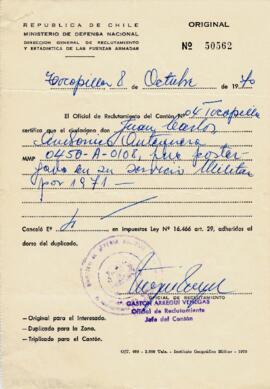 REPUBLICA DE CHILE
MINISTERIO DE DEFENSA NACIONAL
DIRECCION GENERAL DE RECLUTAMIENTO
Y ESTADISTICA DE LAS FUERZAS ARMADAS
ORIGINAL
Nº 50562
Tocopilla 8 Octubre de 1970
El Oficial de Reclutamiento del Cantón Nº 04 Tocopilla
certifica que el ciudadano don Juan Carlos
MMP 0450-A-0108, fue poster-
gado en su servicio Militar
por 1971 —
Canceló Eº
en impuestos Ley Nº 16.466 art. 29, adheridas al
dorso del duplicado.
OFICIAL DE RECLUTAMIENTO
GASTON ARREGUI VENEGAS
Oficial de Reclutamiento
Jefe del Cantón
- Original para el Interesado.
- Duplicado para la Zona.
- Triplicado para el Cantón.
Instituto Geográfico Militar - 1970